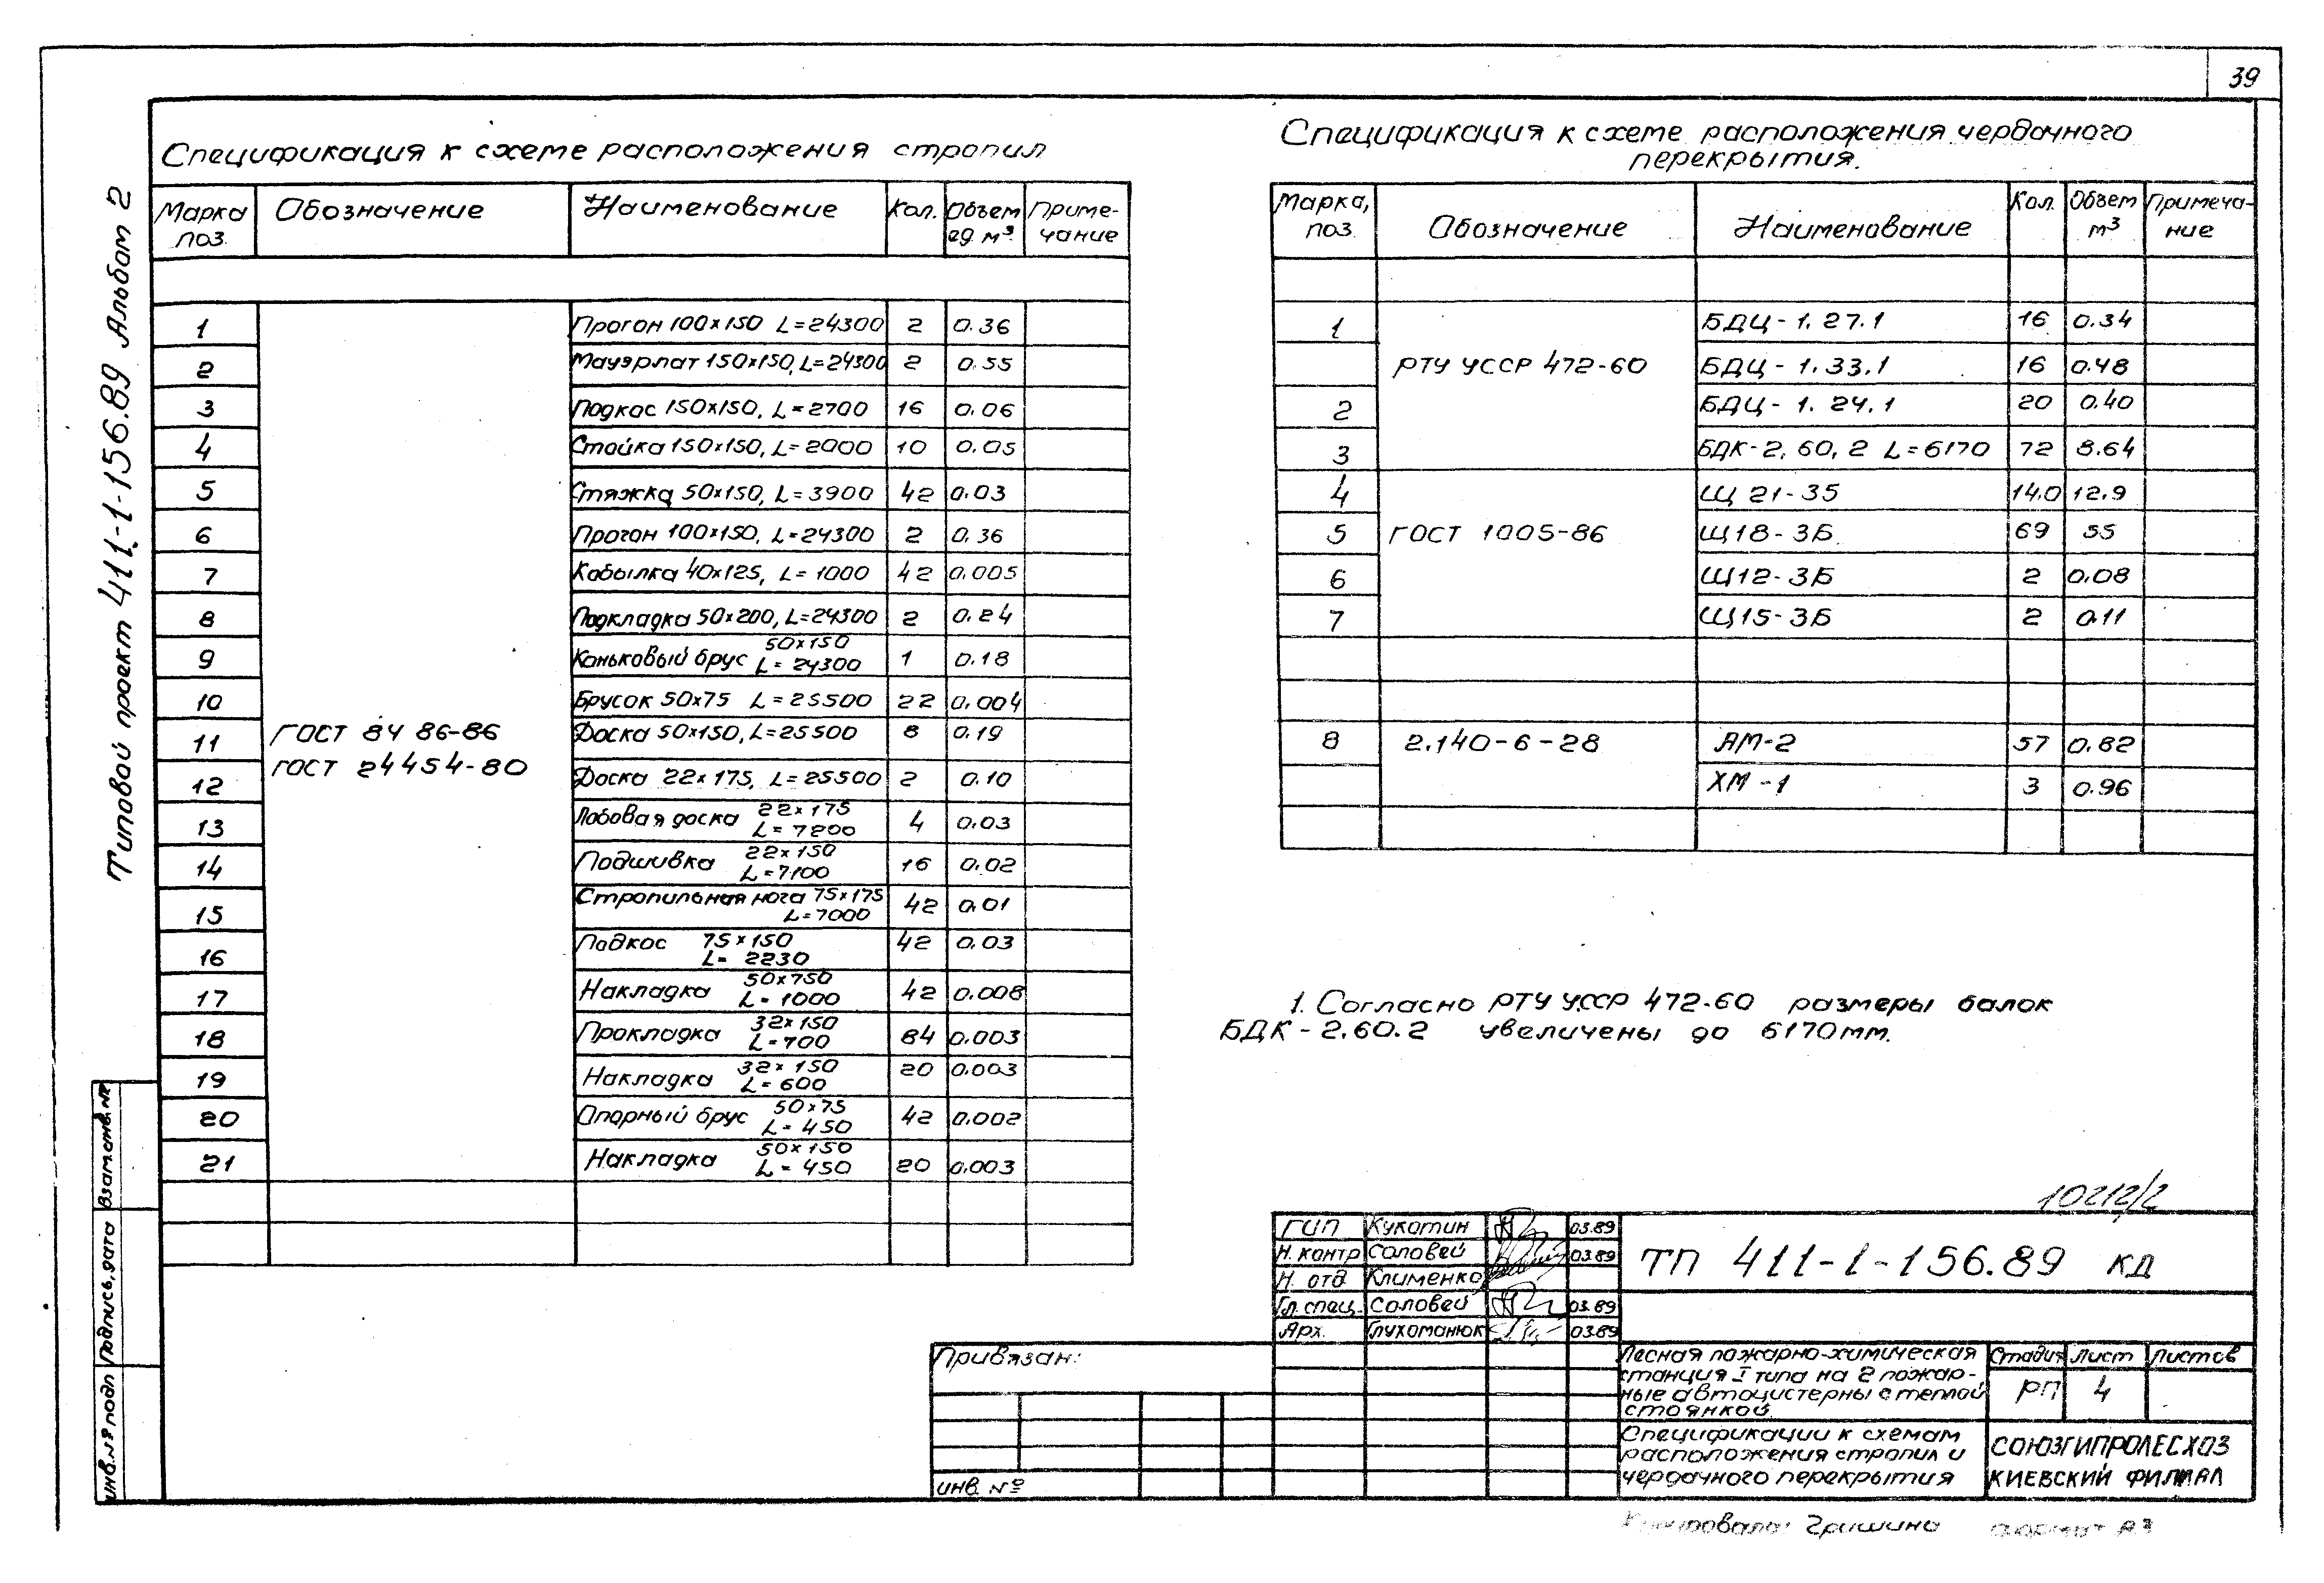 39
Типовой проект 411-1-156.89 Альбом 2
Спецификация к схеме расположения стропил
Марка поз. Обозначение Наименование Кол. Объем ед м³ Приме-чание
ГОСТ 8486-86
ГОСТ 24454-80
1 Прогон 100х150 L=24300 2 0.36
2 Мауэрлат 150х150, L=24300 2 0.55
3 Подкос 150х150, L=2700 16 0.06
4 Стойка 150х150, L=2000 10 0.05
5 Стяжка 50х150, L=3900 42 0.03
6 Прогон 100х150, L=24300 2 0.36
7 Кобылка 40х125, L=1000 42 0.005
8 Подкладка 50х200, L=24300 2 0.24
9 Коньковый брус 50х150 L=24300 1 0.18
10 Брусок 50х75 L=25500 22 0.004
11 Доска 50х150, L=25500 8 0.19
12 Доска 22х175, L=25500 2 0.10
13 Лобовая доска 22х175 L=7200 4 0.03
14 Подшивка 22х150 L=7100 16 0.02
15 Стропильная нога 75х175 L=7000 42 0.01
16 Подкос 75х150 L=2230 42 0.03
17 Накладка 50х750 L=1000 42 0.008
18 Прокладка 32х150 L=700 84 0.003
19 Накладка 32х150 L=600 20 0.003
20 Опорный брус 50х75 L=450 42 0.002
21 Накладка 50х150 L=450 20 0.003
Спецификация к схеме расположения чердачного
перекрытия.
Марка, поз. Обозначение Наименование Кол. Объем м³ Примеча-ние
1 БДЦ-1.27.1 16 0.34
РТУ УССР 472-60 БДЦ-1.33.1 16 0.48
2 БДЦ-1.24.1 20 0.40
3 БДК-2,60,2 L=6170 72 8.64
4 Щ 21-35 14.0 12.9
5 ГОСТ 1005-86 Щ18-3Б 69 55
6 Щ12-3Б 2 0.08
7 Щ15-3Б 2 0.11
8 2.140-6-28 АМ-2 57 0.82
ХМ-1 3 0.96
1. Согласно РТУ УССР 472-60 размеры балок
БДК-2.60.2 увеличены до 6170мм.
10212/2
ГИП Кукотин 03.89
Н. контр Соловей 03.89
Н. отд Клименко
Гл. спец. Соловей 03.89
Арх. Глухоманюк 03.89
ТП 411-1-156.89 КД
Привязан:
инв. №
Лесная пожарно-химическая
станция I типа на 2 пожар-
ные автоцистерны с теплой
стоянкой.
Стадия Лист Листов
РП 4
Спецификации к схемам
расположения стропил и
чердачного перекрытия
СОЮЗГИПРОЛЕСХОЗ
КИЕВСКИЙ ФИЛИАЛ
Копировала: Гришина формат А3
Инв.№ подп Подпись, дата Взам.инв.№